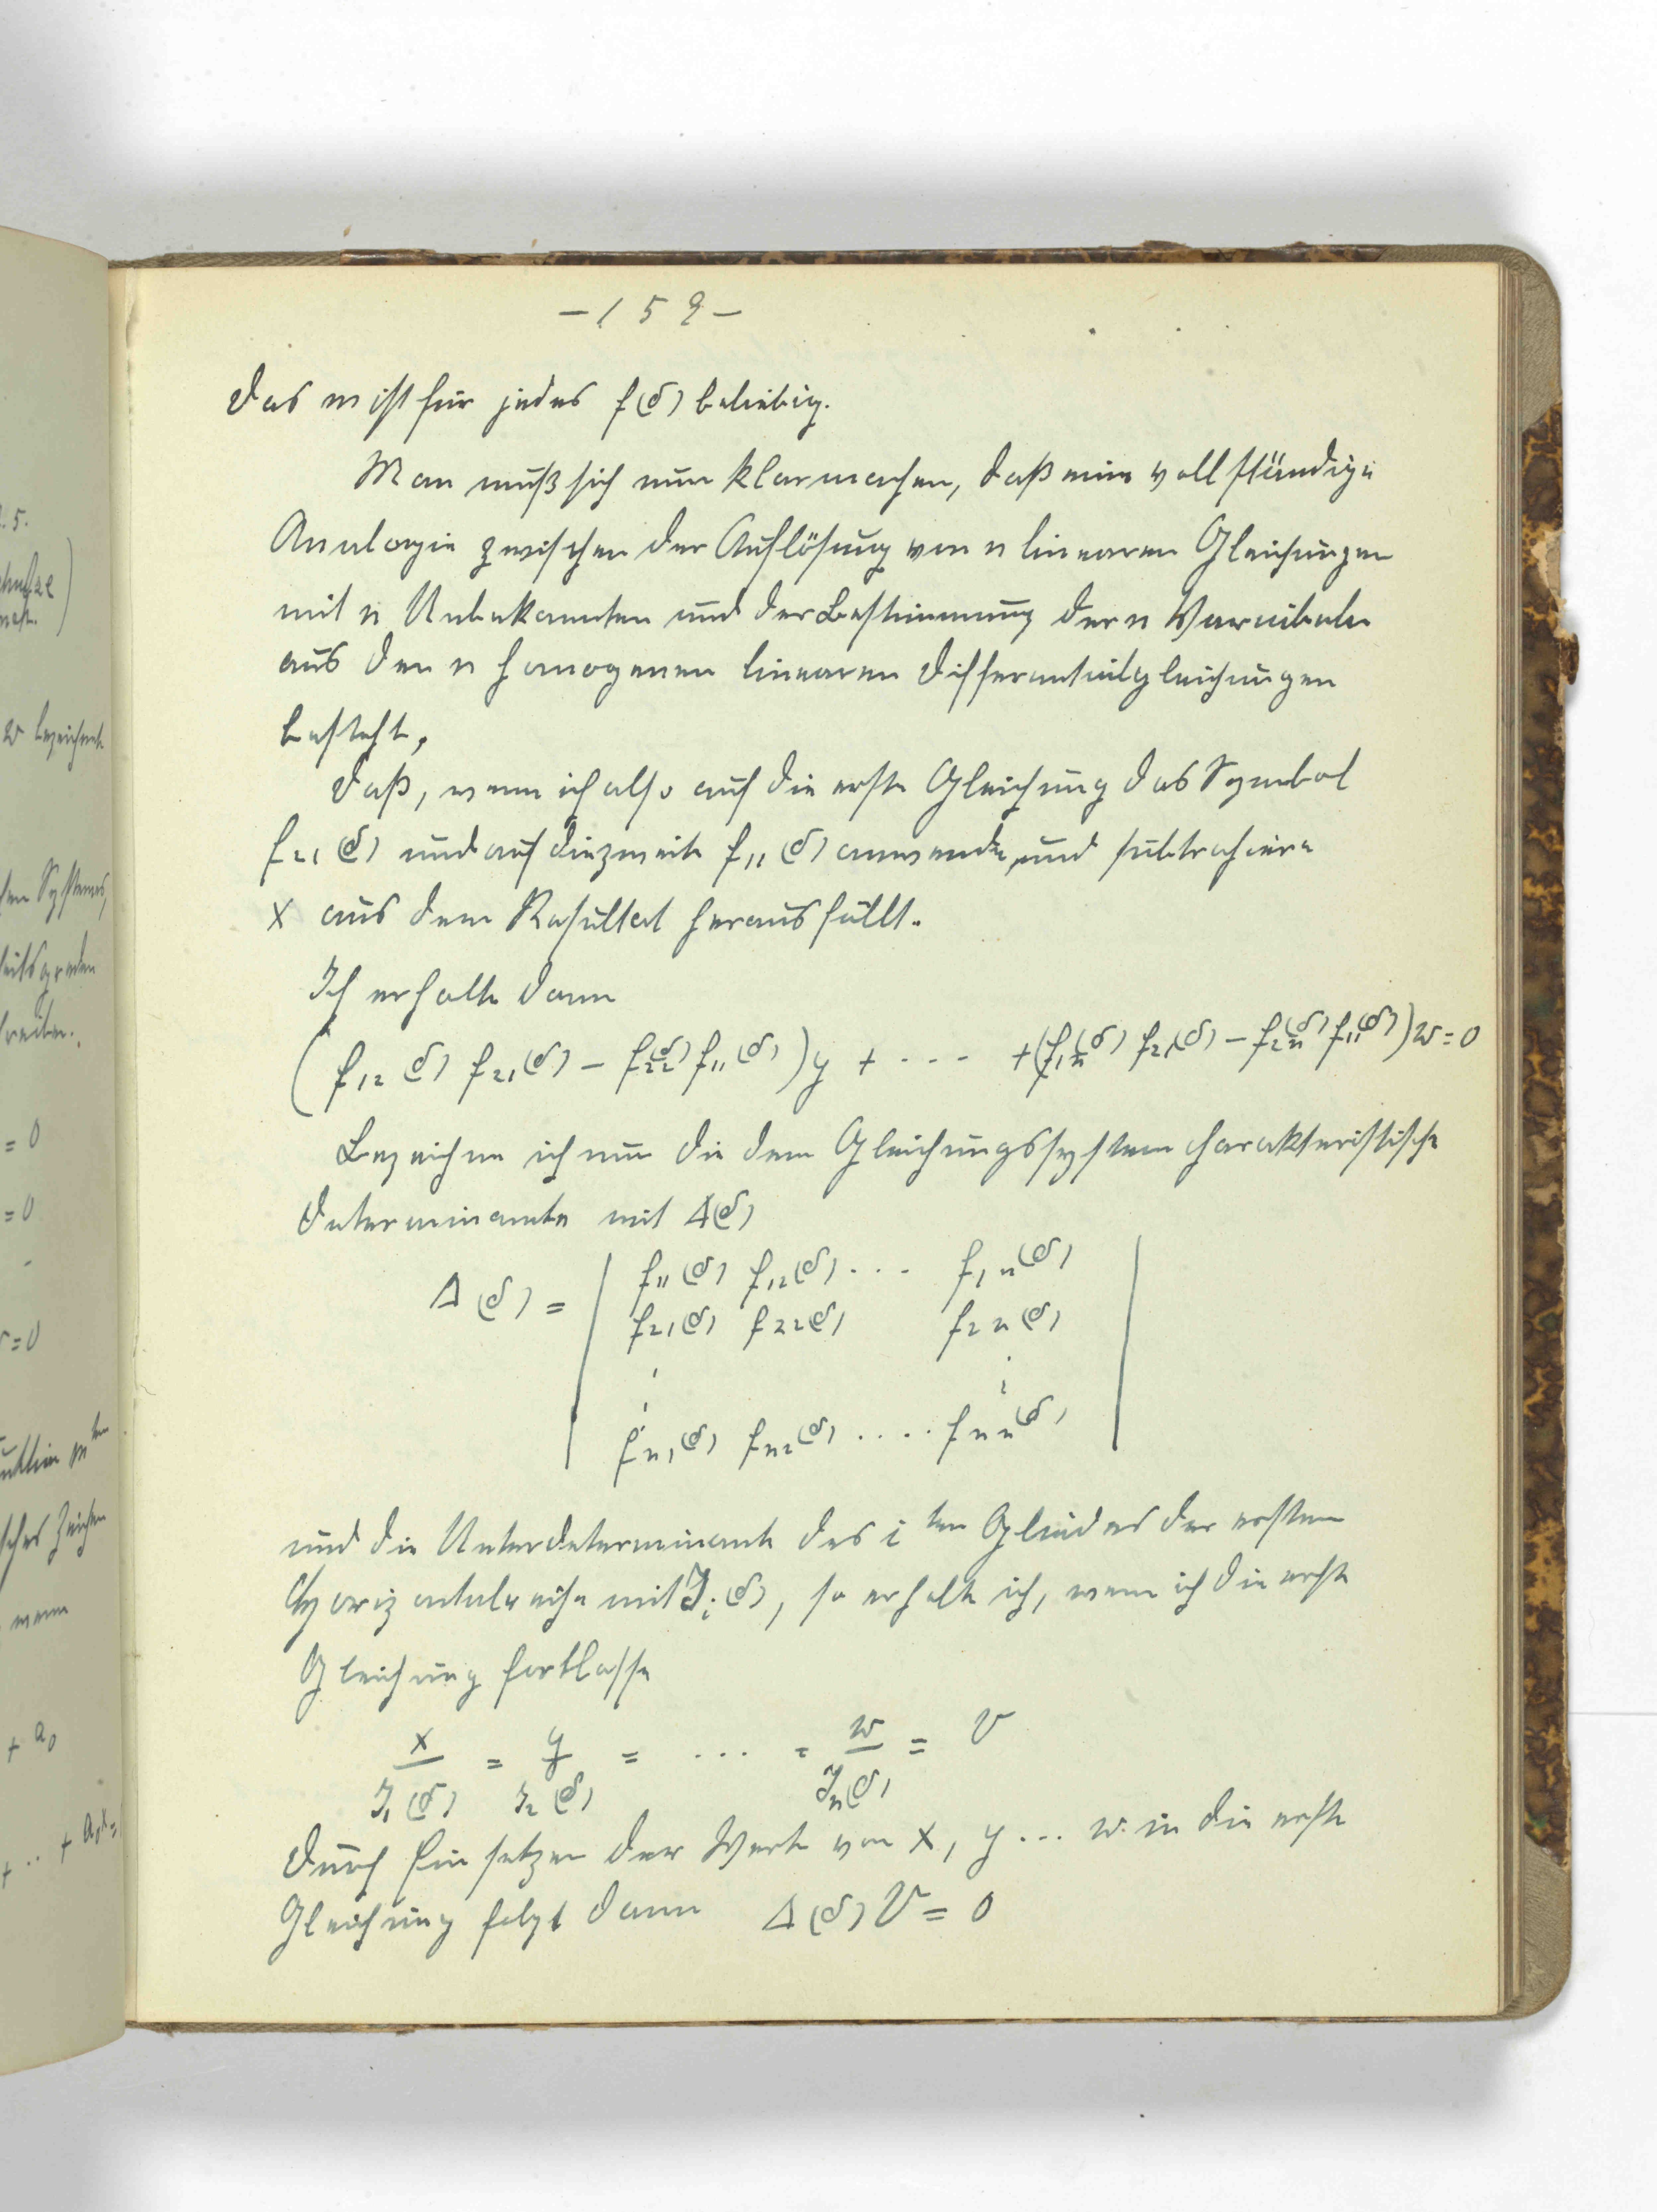 – 1 5 9 –
Das m ist für jedes f(δ) beliebig.
Man muß sich nun klarmachen, daß eine vollständige
Analogie zwischen der Auflösung von n linearen Gleichungen
mit n Unbekannten und der Bestimmung der n Variabeln
aus den n homogenen linearen Differentialgleichungen
besteht,
daß, wenn ich also auf die erste Gleichung das Symbol
f₂₁(δ) und auf die zweite f₁₁(δ) anwende, und subtrahiere
x aus dem Resultat herausfällt.
Ich erhalte dann
(f₁₂(δ) f₂₁(δ) – f₂₂(δ) f₁₁(δ))y + ··· + (f₁ₙ(δ) f₂₁(δ) – f₂ₙ(δ) f₁₁(δ))w = 0
Bezeichne ich nun die dem Gleichungssystem charakteristische
Determinante mit Δ(δ)
Δ(δ) = | f₁₁(δ) f₁₂(δ) ··· f₁ₙ(δ) |
f₂₁(δ) f₂₂(δ) f₂ₙ(δ)
fₙ₁(δ) fₙ₂(δ) ···· fₙₙ(δ)
und die Unterdeterminante des i ten Gliedes der ersten
Horizontalreihe mit J_i(δ), so erhalte ich, wenn ich die erste
Gleichung fortlasse
x/J₁(δ) = y/J₂(δ) = ··· = w/Jₙ(δ) = V
Durch Einsetzen der Werte von x, y ... w in die erste
Gleichung folgt dann Δ(δ) V = 0
= 0
= 0
w bezeichnet
+ a₀